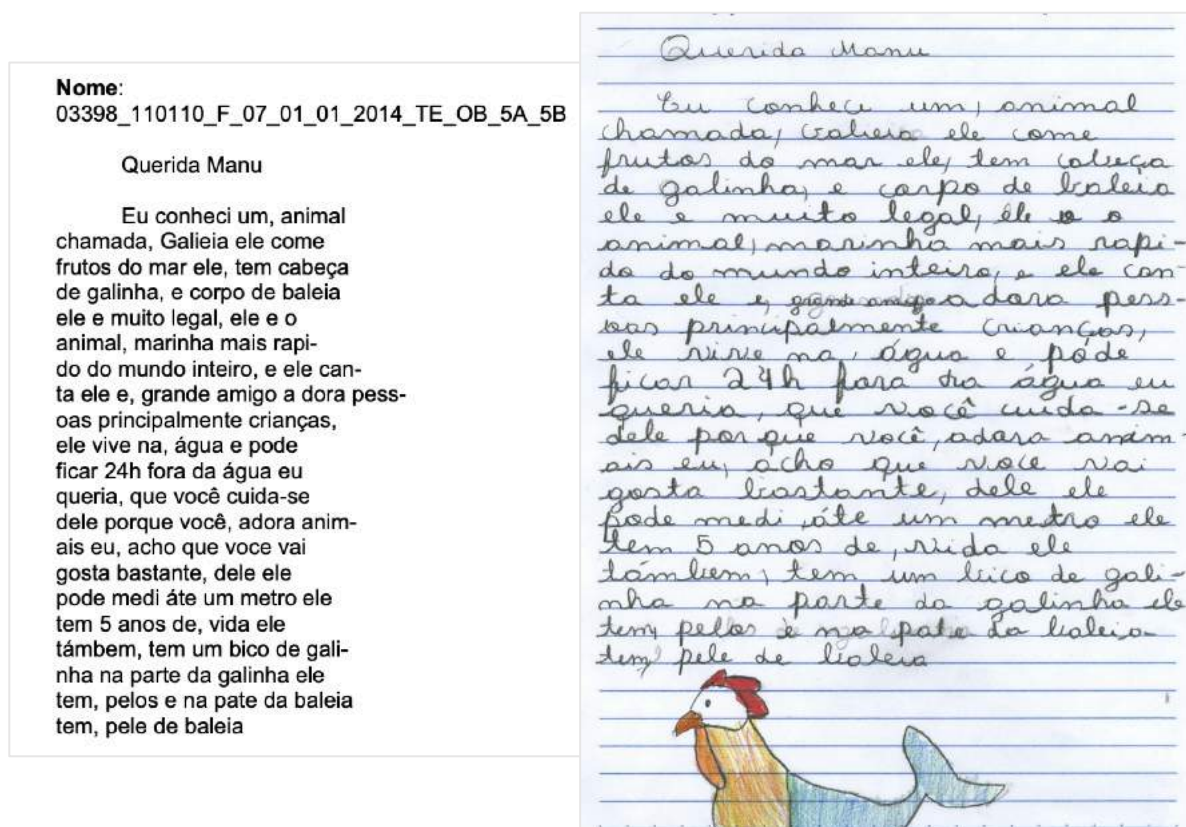 Nome:
03398_110110_F_07_01_01_2014_TE_OB_5A_5B
Querida Manu
Eu conheci um, animal
chamada, Galieia ele come
frutos do mar ele, tem cabeça
de galinha, e corpo de baleia
ele e muito legal, ele e o
animal, marinha mais rapi-
do do mundo inteiro, e ele can-
ta ele e, grande amigo a dora pess-
oas principalmente crianças,
ele vive na, água e pode
ficar 24h fora da água eu
queria, que você cuida-se
dele porque você, adora anim-
ais eu, acho que voce vai
gosta bastante, dele ele
pode medi áte um metro ele
tem 5 anos de, vida ele
támbem, tem um bico de gali-
nha na parte da galinha ele
tem, pelos e na pate da baleia
tem, pele de baleia
Querida Manu
Eu conheci um, animal
chamada, Galieia ele come
frutos do mar ele, tem cabeça
de galinha, e corpo de baleia
ele e muito legal, ele e o
animal, marinha mais rapi-
do do mundo inteiro, e ele can-
ta ele e, grande amigo a dora pess-
oas principalmente crianças,
ele vive na, água e pode
ficar 24h fora da água eu
queria, que você cuida-se
dele porque você, adora anim-
ais eu, acho que voce vai
gosta bastante, dele ele
pode medi áte um metro ele
tem 5 anos de, vida ele
támbem, tem um bico de gali-
nha na parte da galinha ele
tem, pelos e na pate da baleia
tem, pele de baleia